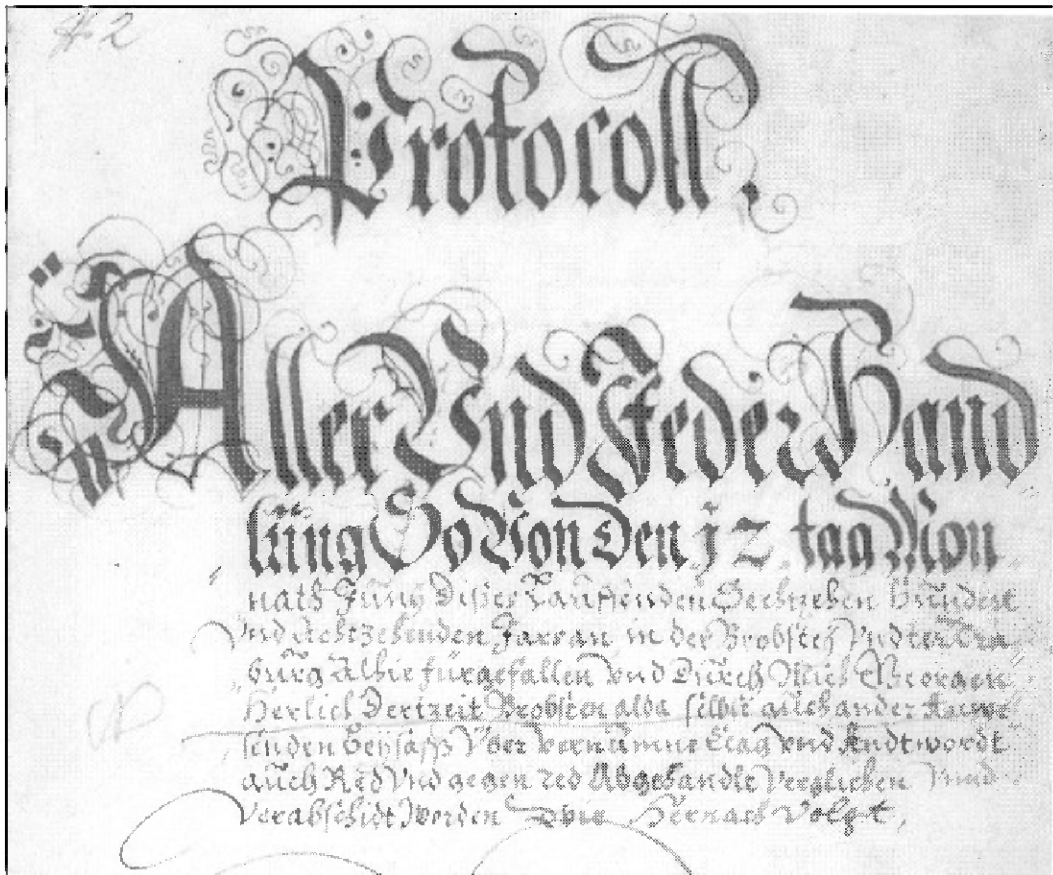 # 2
Protocoll.
Aller Vnd Jeder Hand
lüng So Von Den 12. tag Mon
nath Juny diser Lauffenden Sechzehen Hundert
Vnd Achtzehenden Jars an in der Brobsteÿ Vndter Dra
burg Alhie fürgefallen Vnd Dürch Mich Georgen
Herlich Dertzeit Brobsten alda selbst auch ander
senden Beÿsäss Vber Vernümne Clag Vnd Andtwordt
auch Red Vnd gegen red Abgehandlt Verglichen Vnnd
Verabschidt Worden Wie Hernach Volgt,